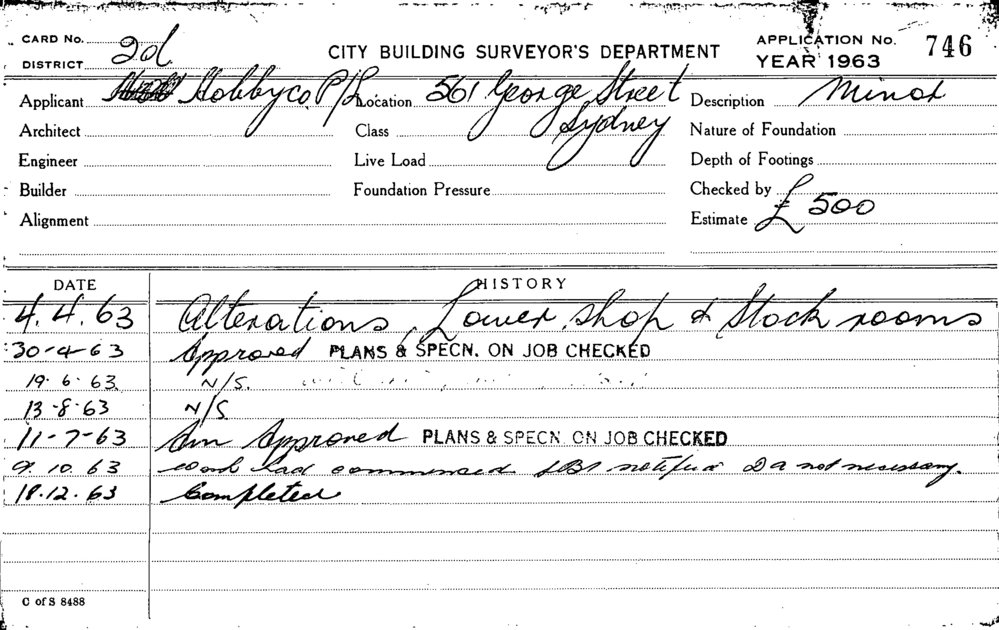 CARD No.
DISTRICT 2d
CITY BUILDING SURVEYOR'S DEPARTMENT
APPLICATION No. 746
YEAR 1963
Applicant Hobbyco P/L Location 561 George Street Description Minor
Sydney
Architect Class Nature of Foundation
Engineer Live Load Depth of Footings
Builder Foundation Pressure Checked by
Alignment Estimate £ 500
DATE HISTORY
4.4.63 Alterations, Lower shop & Stock rooms
30-4-63 Approved PLANS & SPECN. ON JOB CHECKED
19.6.63 N/S.
13-8-63 N/S
11-7-63 Am Approved PLANS & SPECN. ON JOB CHECKED
9.10.63 work had commenced notified D a not necessary.
18.12.63 Completed
C of S 8488